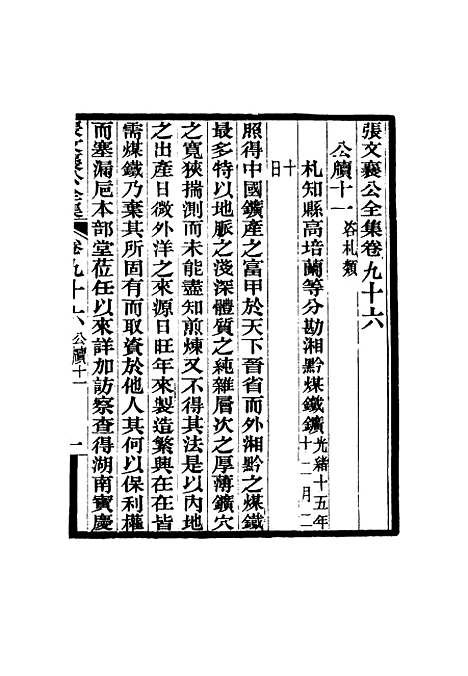 張文襄公全集卷九十六
公牘十一 咨札類
札知縣高培蘭等分勘湘黔煤鐵鑛 光緒十五年十二月二
十日
照得中國鑛產之富甲於天下晉省而外湘黔之煤鐵
最多特以地脈之淺深體質之純雜層次之厚薄鑛穴
之寬狹揣測而未能盡知煎煉又不得其法是以內地
之出產日微外洋之來源日旺年來製造繁興在在皆
需煤鐵乃棄其所固有而取資於他人其何以保利權
而塞漏卮本部堂莅任以來詳加訪察查得湖南寶慶
張文襄公全集 卷九十六 公牘十一 一